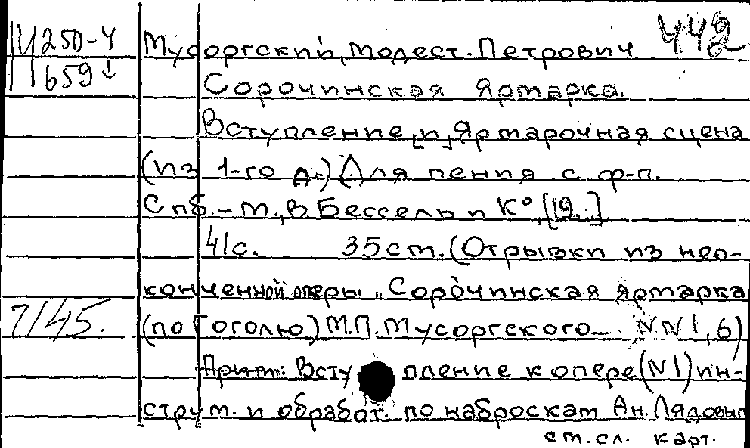 М 250-4
659↓
442
Мусоргский, Модест Петрович
Сорочинская ярмарка.
Вступление [и] Ярмарочная сцена
(из 1-го д.) Для пения с ф-п.
Спб.-М., В. Бессель и К°, [19..]
41с. 35 см. (Отрывки из нео-
конченной оперы "Сорочинская ярмарка
7/45.
(по Гоголю) М.П. Мусоргского... NN 1, 6)
Прим: Вступление к опере (N1) ин-
струм. и обработ. по наброскам Ан. Лядовым
см. сл. карт.